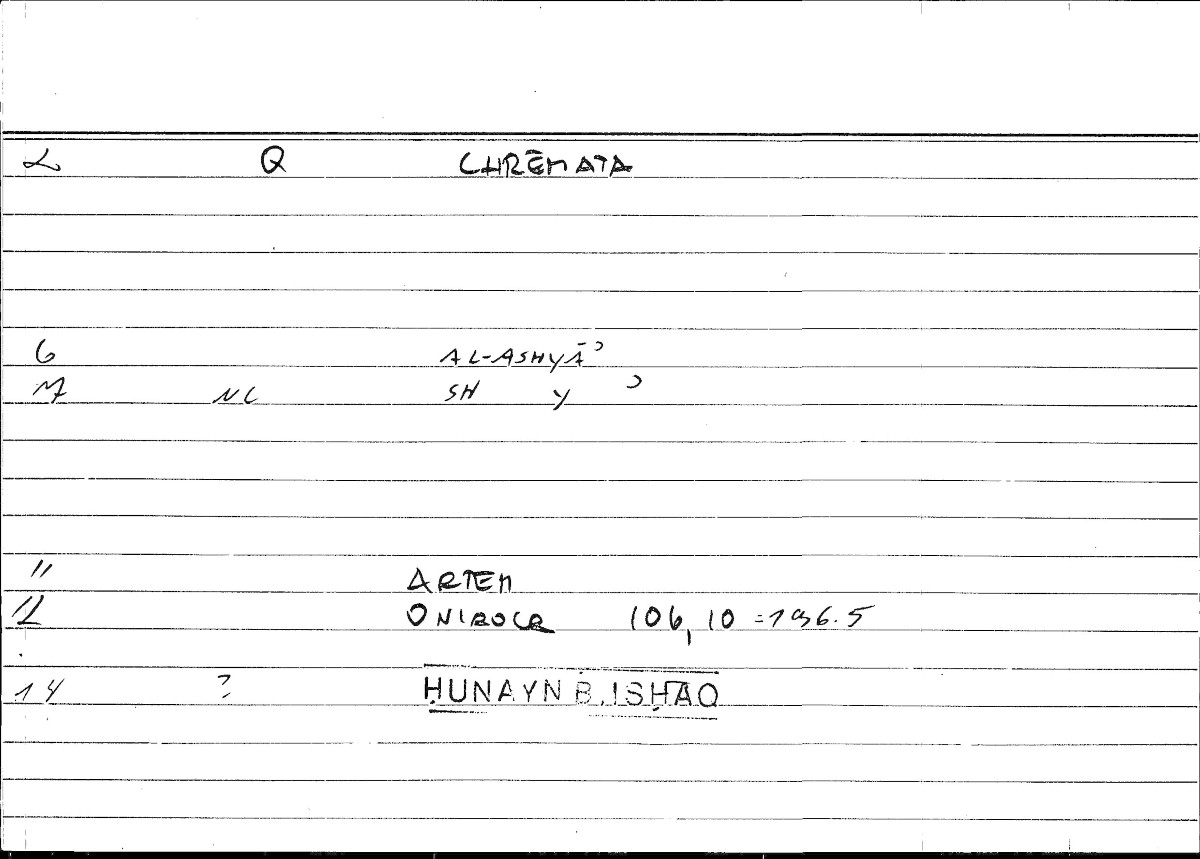 2 Q CHRĒMATA
6 AL-ASHYĀʾ
M7 NC SH Y ʾ
11 ARTEM
12 ONIROCR 106,10 =196.5
14 ? ḤUNAYN B. ISḤAQ